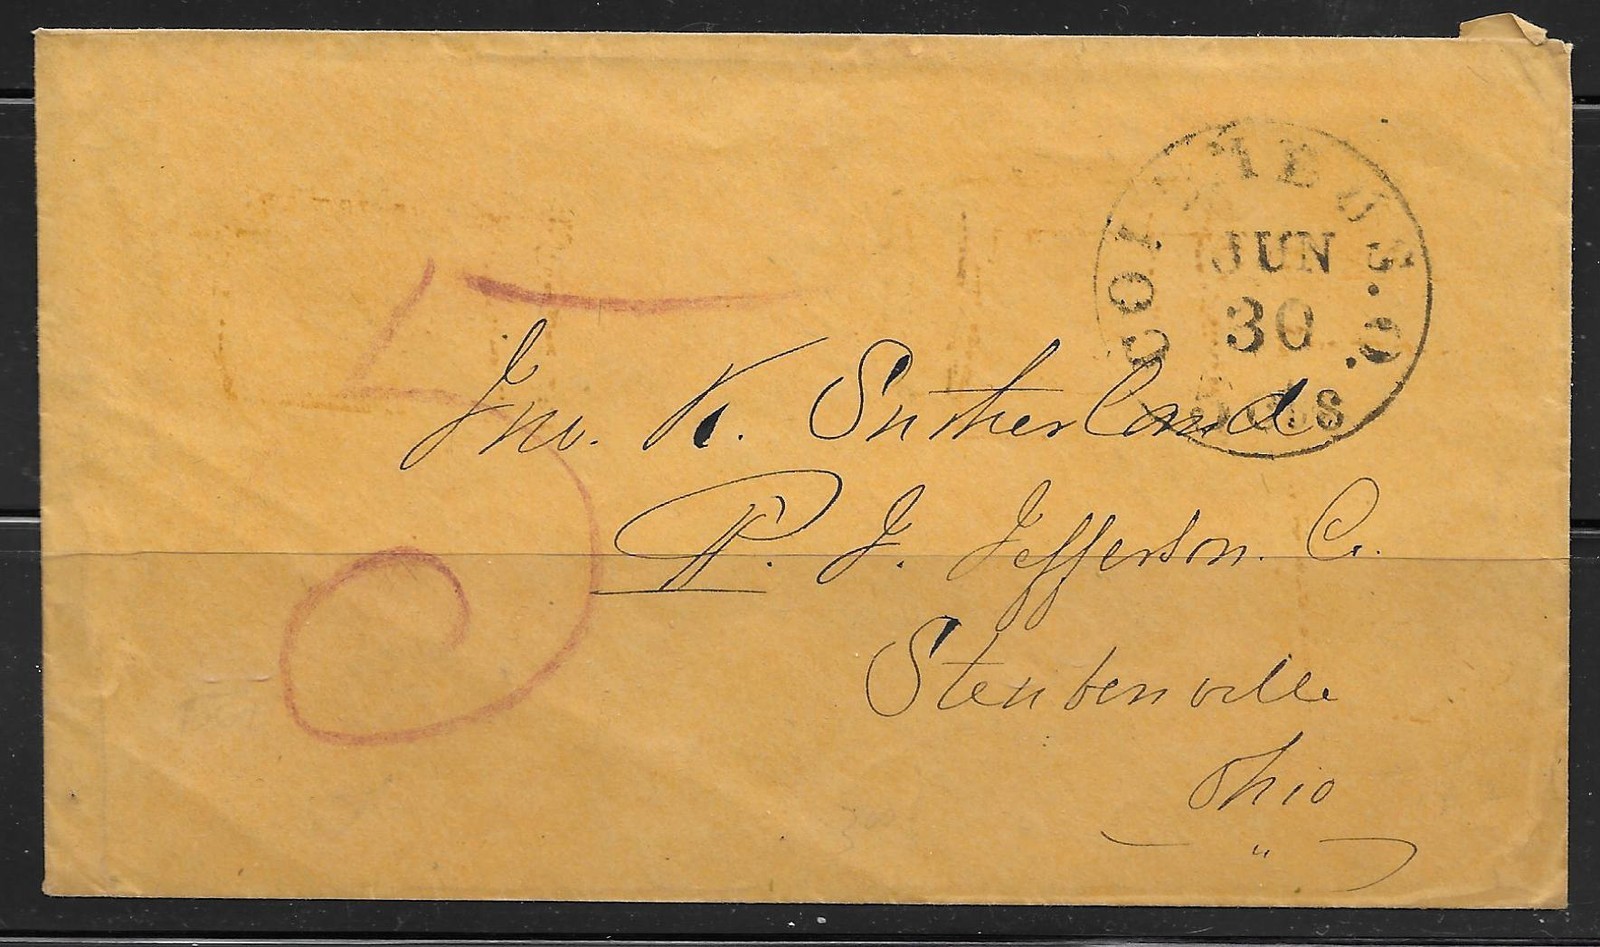 COLUMBUS. O.
JUN
30
5 cts
5
Jno. K. Sutherland
P. J. Jefferson. Co.
Steubenville
Ohio
"
300